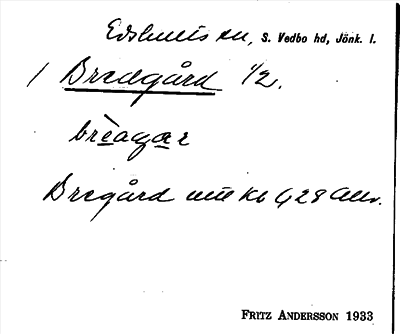 Edshults sn, S. Vedbo hd, Jönk. l.
/ Bredgård 1/2.
brèagar
Bregård
FRITZ ANDERSSON 1933